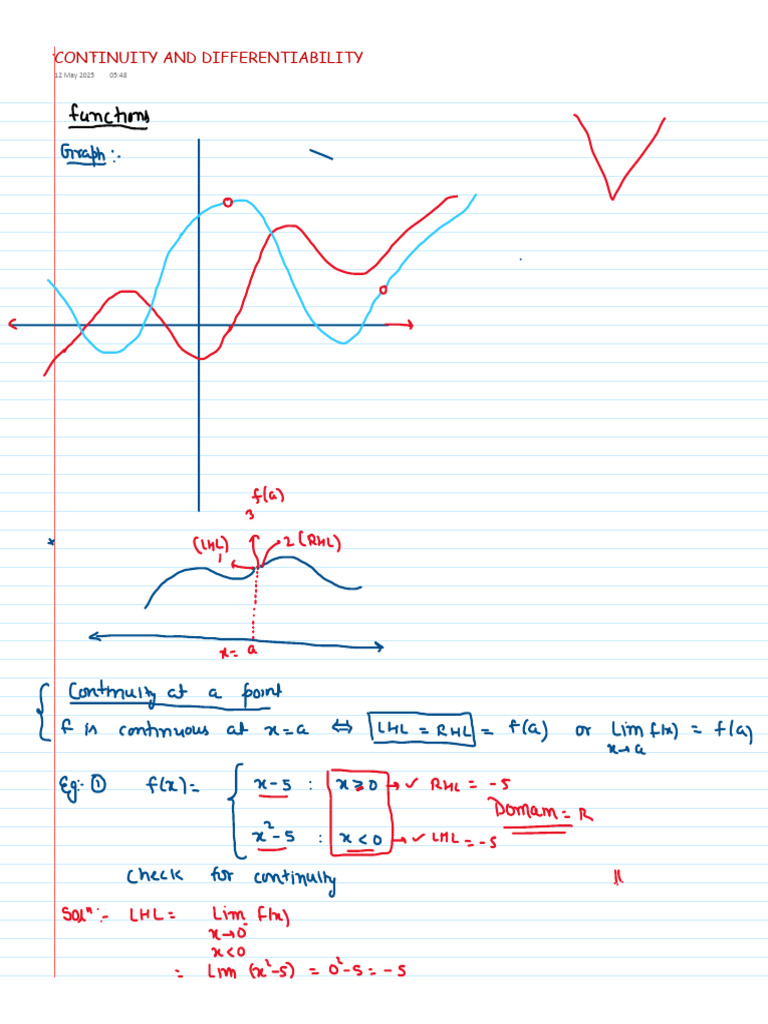 CONTINUITY AND DIFFERENTIABILITY
12 May 2025 05:48
functions
Graph :-
f(a)
3
(LHL) 2 (RHL)
1
x = a
Continuity at a point
f is continuous at x=a ⇔ LHL = RHL = f(a) or Lim f(x) = f(a)
x→a
Eg:- ① f(x) = x-5 : x≥0 → ✓ RHL = -5
Domain = R
x²-5 : x<0 → ✓ LHL = -5
Check for continuity
Solⁿ:- LHL = Lim f(x)
x→0⁻
x<0
= Lim (x²-5) = 0²-5 = -5